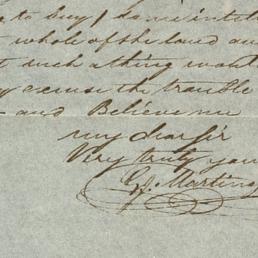 to buy, I
whole of the land an
such a thing want
excuse the trouble
and Believe me
my dear sir
Very truly you
G. Marting